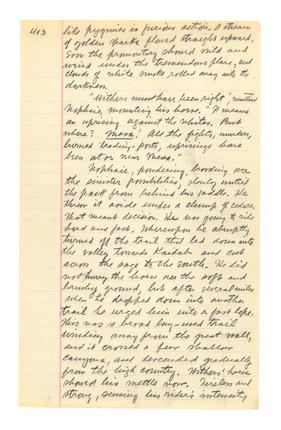 413
like pygmies in furious action. A stream
of golden sparks flared straight upward.
Soon the promontory showed wild and
weird under the tremendous flare, and
clouds of white smoke rolled away into the
darkness.
"Withers must have been right," muttered
Nophaie, mounting his horse. "It means
an uprising against the whites. But
where? Mesa! All the fights, murders,
burned trading-posts, uprisings have
been at or near Mesa."
Nophaie, pondering, brooding over
the sinister possibilities, slowly untied
the pack from behind his saddle. He
threw it aside under a clump of cedars.
That meant decision. He was going to ride
hard and fast. Whereupon he abruptly
turned off the trail that led down into
the valley towards Kaidab and cut
across the sage to the South. He did
not hurry the horse over the soft and
brushy ground, but after several miles
when he dropped down into another
trail he urged him into a fast lope.
This was a broad long-used trail
winding away from the great wall,
and it crossed a few shallow
canyons, and descended gradually
from the high country. Withers' horse
showed his mettle now. Tireless and
strong, sensing his rider's intensity